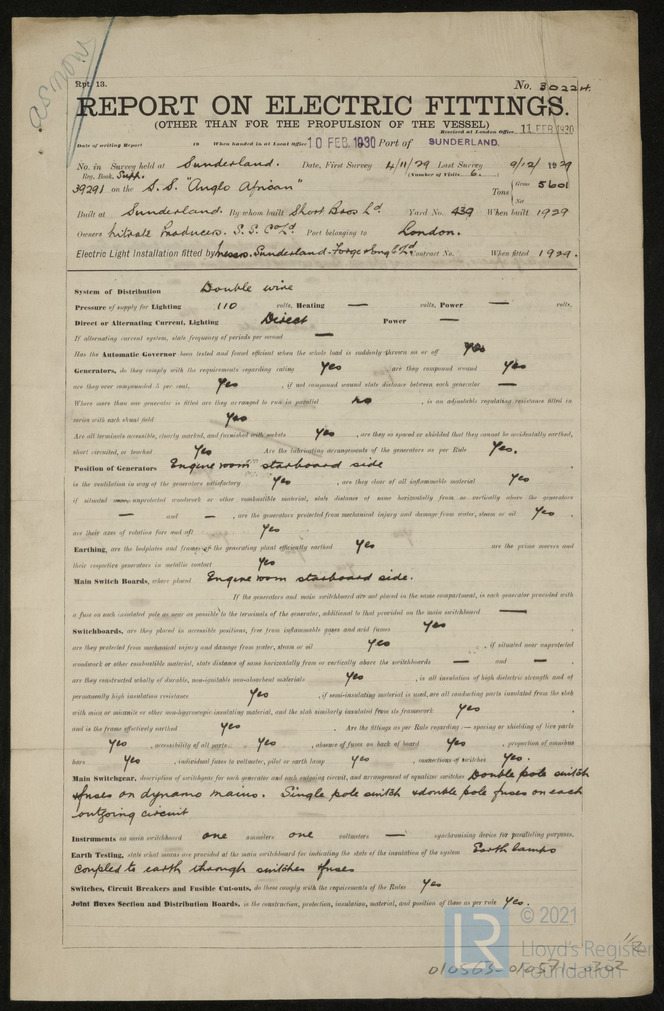 Rpt. 13.
No. 30224.
REPORT ON ELECTRIC FITTINGS.
(OTHER THAN FOR THE PROPULSION OF THE VESSEL)
Received at London Office 11 FEB 1930
Date of writing Report 19 When handed in at Local Office 10 FEB. 1930 Port of SUNDERLAND.
No. in Survey held at Sunderland. Date, First Survey 4/11/29 Last Survey 9/12/1929
Reg. Book. Supp. (Number of Visits 6.)
39291 on the S.S. "Anglo African" Tons Gross 5601
Net
Built at Sunderland. By whom built Short Bros Ld. Yard No. 439 When built 1929
Owners Nitrate Producers. S.S. Co Ld Port belonging to London.
Electric Light Installation fitted by Messrs. Sunderland Forge & Eng Co Ld Contract No. When fitted 1929.
System of Distribution Double wire
Pressure of supply for Lighting 110 volts, Heating — volts, Power — volts.
Direct or Alternating Current, Lighting Direct Power —
If alternating current system, state frequency of periods per second —
Has the Automatic Governor been tested and found efficient when the whole load is suddenly thrown on or off Yes
Generators, do they comply with the requirements regarding rating Yes are they compound wound Yes
are they over compounded 5 per cent. Yes , if not compound wound state distance between each generator —
Where more than one generator is fitted are they arranged to run in parallel no , is an adjustable regulating resistance fitted in
series with each shunt field Yes
Are all terminals accessible, clearly marked, and furnished with sockets Yes , are they so spaced or shielded that they cannot be accidentally earthed,
short circuited, or touched Yes Are the lubricating arrangements of the generators as per Rule Yes.
Position of Generators Engine room starboard side
is the ventilation in way of the generators satisfactory Yes , are they clear of all inflammable material Yes
if situated near unprotected woodwork or other combustible material, state distance of same horizontally from or vertically above the generators
— and — , are the generators protected from mechanical injury and damage from water, steam or oil Yes ,
are their axes of rotation fore and aft Yes
Earthing, are the bedplates and frames of the generating plant efficiently earthed Yes are the prime movers and
their respective generators in metallic contact Yes
Main Switch Boards, where placed Engine room starboard side.
If the generators and main switchboard are not placed in the same compartment, is each generator provided with
a fuse on each insulated pole as near as possible to the terminals of the generator, additional to that provided on the main switchboard —
Switchboards, are they placed in accessible positions, free from inflammable gases and acid fumes Yes ,
are they protected from mechanical injury and damage from water, steam or oil Yes , if situated near unprotected
woodwork or other combustible material, state distance of same horizontally from or vertically above the switchboards — and — ,
are they constructed wholly of durable, non-ignitable non-absorbent materials Yes , is all insulation of high dielectric strength and of
permanently high insulation resistance Yes , if semi-insulating material is used, are all conducting parts insulated from the slab
with mica or micanite or other non-hygroscopic insulating material, and the slab similarly insulated from its framework Yes ,
and is the frame effectively earthed Yes . Are the fittings as per Rule regarding :— spacing or shielding of live parts
Yes , accessibility of all parts Yes , absence of fuses on back of board Yes , proportion of omnibus
bars Yes , individual fuses to voltmeter, pilot or earth lamp Yes , connections of switches Yes.
Main Switchgear, description of switchgear for each generator and each outgoing circuit, and arrangement of equalizer switches Double pole switch
& fuses on dynamo mains. Single pole switch & double pole fuses on each
outgoing circuit
Instruments on main switchboard one ammeters one voltmeters — synchronising device for paralleling purposes.
Earth Testing, state what means are provided at the main switchboard for indicating the state of the insulation of the system Earth lamps
coupled to earth through switches & fuses
Switches, Circuit Breakers and Fusible Cut-outs, do these comply with the requirements of the Rules Yes
Joint Boxes Section and Distribution Boards, is the construction, protection, insulation, material, and position of these as per rule Yes.
LR © 2021
Lloyd's Register
Foundation
1/2
010563-010571-0302